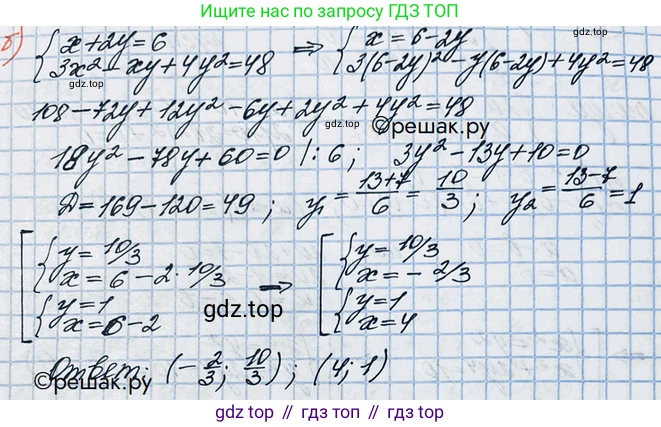 Ищите нас по запросу ГДЗ ТОП
б) { x+2y=6 => { x=6-2y
3x²-xy+4y²=48 3(6-2y)²-y(6-2y)+4y²=48
gdz.top
108-72y+12y²-6y+2y²+4y²=48
gdz.top ©решак.ру
18y²-78y+60=0 |:6; 3y²-13y+10=0
Д=169-120=49; y₁=(13+7)/6=10/3; y₂=(13-7)/6=1
[ { y=10/3 [ { y=10/3
x=6-2·10/3 => x=-2/3
{ y=1 { y=1
x=6-2 x=4
gdz.top
Ответ: (-2/3; 10/3); (4; 1)
©решак.ру
gdz.top // gdz.top // gdz.top // gdz.top